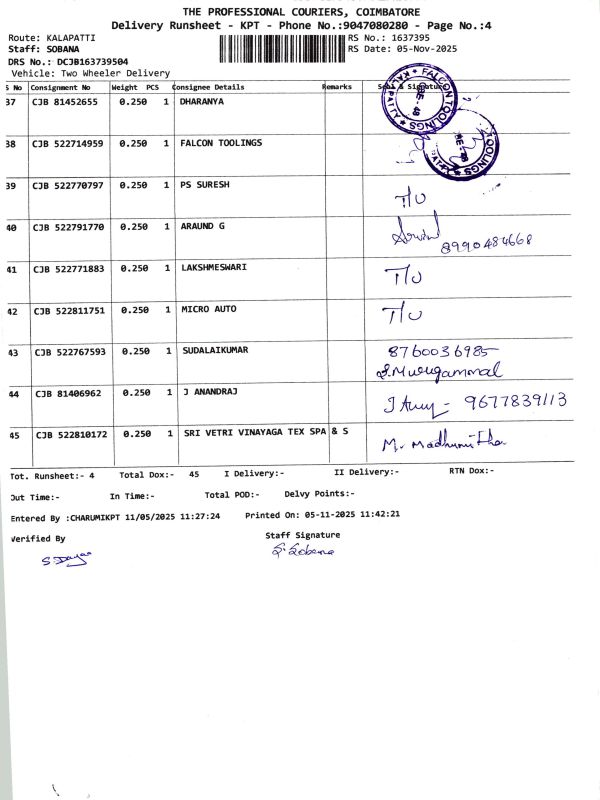 THE PROFESSIONAL COURIERS, COIMBATORE
Delivery Runsheet - KPT - Phone No.:9047080280 - Page No.:4
Route: KALAPATTI RS No.: 1637395
Staff: SOBANA RS Date: 05-Nov-2025
DRS No.: DCJB163739504
Vehicle: Two Wheeler Delivery
S No Consignment No Weight PCS Consignee Details Remarks Seal & Signature
37 CJB 81452655 0.250 1 DHARANYA
FALCON TOOLINGS
38 CJB 522714959 0.250 1 FALCON TOOLINGS
TOOLINGS
39 CJB 522770797 0.250 1 PS SURESH T/U
40 CJB 522791770 0.250 1 ARAUND G 8990484668
41 CJB 522771883 0.250 1 LAKSHMESWARI T/U
42 CJB 522811751 0.250 1 MICRO AUTO T/U
43 CJB 522767593 0.250 1 SUDALAIKUMAR 8760036985
S.Murugammal
44 CJB 81406962 0.250 1 J ANANDRAJ 9677839113
45 CJB 522810172 0.250 1 SRI VETRI VINAYAGA TEX SPA & S M. Madhumitha
Tot. Runsheet:- 4 Total Dox:- 45 I Delivery:- II Delivery:- RTN Dox:-
Out Time:- In Time:- Total POD:- Delvy Points:-
Entered By :CHARUMIKPT 11/05/2025 11:27:24 Printed On: 05-11-2025 11:42:21
Verified By Staff Signature
S. Sobana